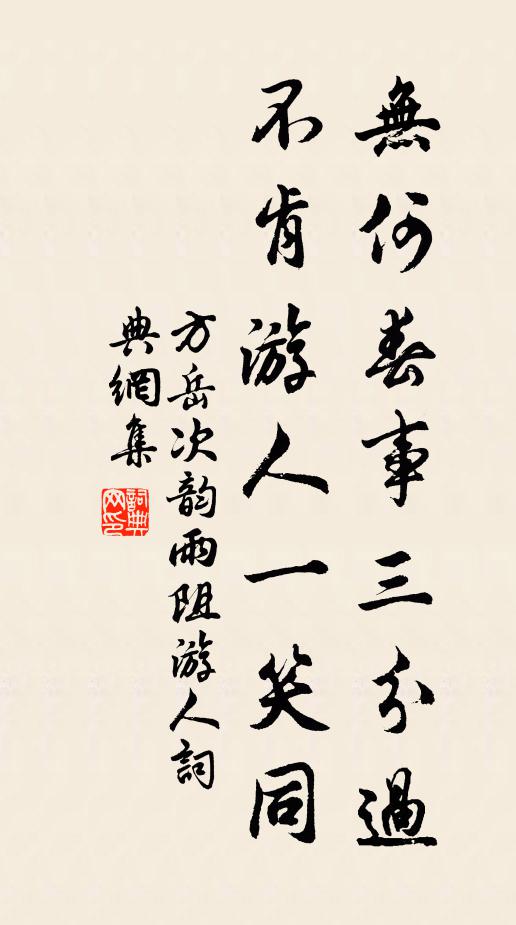 無何春事三分過
不肯游人一笑同
方岳次韵雨阻游人詞
典網集
詞典
网印